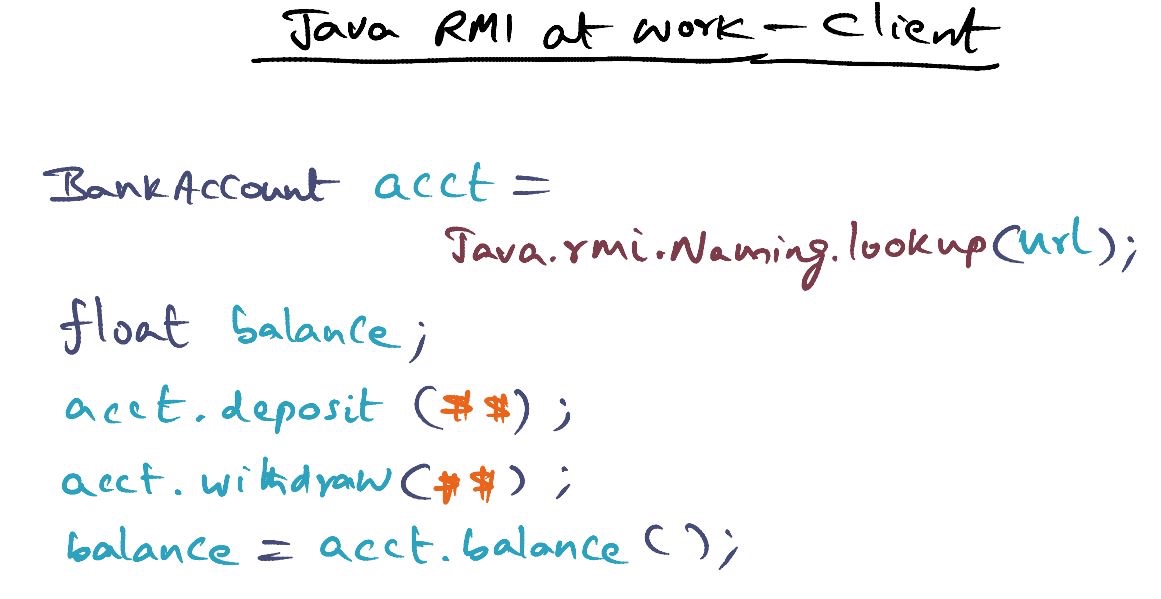 Java RMI at work - Client
BankAccount acct =
Java.rmi.Naming.lookup(url);
float balance;
acct.deposit ($$);
acct.withdraw($$);
balance = acct.balance ();